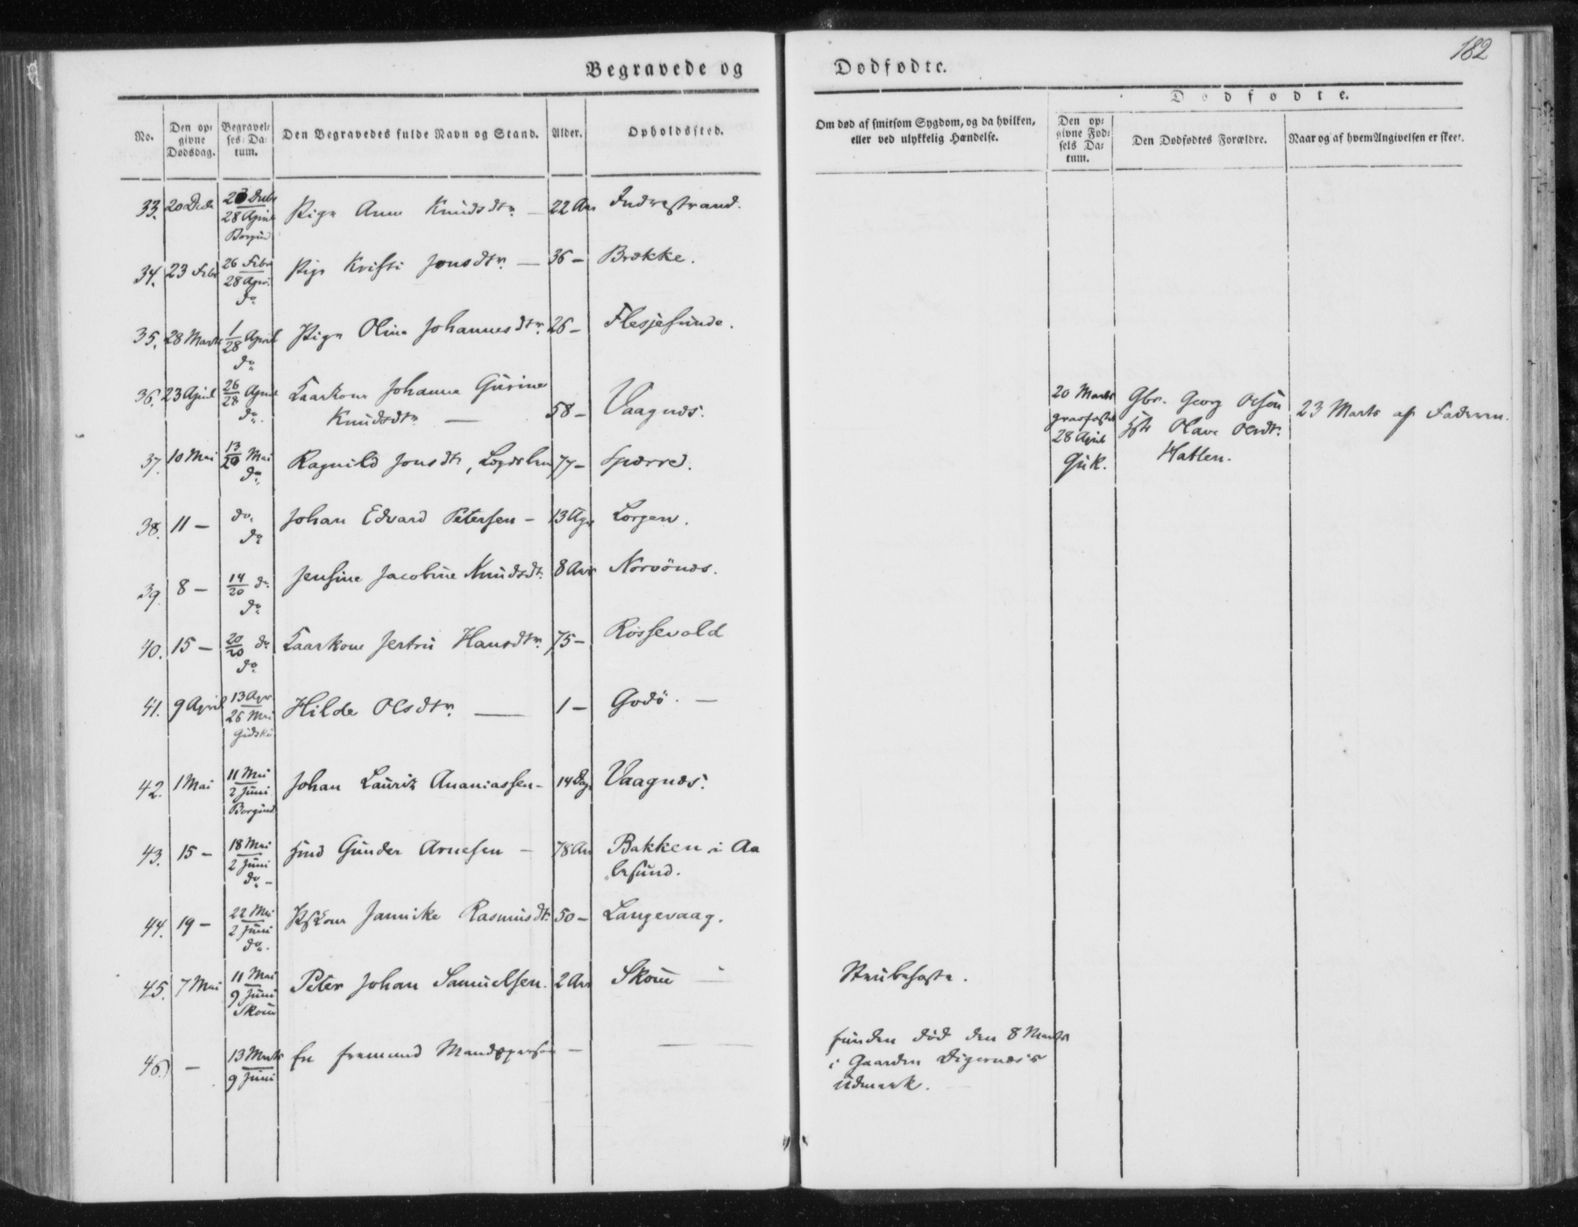 182
Begravede og Dødfødte.
Dødfødte.
No.
Den opgivne Dødsdag.
Begravelses Datum.
Den Begravedes fulde Navn og Stand.
Alder.
Opholdssted.
Om død af smitsom Sygdom, og da hvilken, eller ved ulykkelig Hændelse.
Den opgivne Fødsels Datum.
Den Dødfødtes Forældre.
Naar og af hvem Angivelsen er skeet.
33. 20 Decbr 28 April Borgund Pige Anne Knudsdtr. — 22 Aar Indrestrand.
34. 23 Febr 26 Febr 28 April do Pige Kristi Jonsdtr. — 36 — Brække.
35. 28 Marts 1/28 April do Pige Oline Johannesdtr. 26 — Flesjesunde.
36. 23 April 26/28 April do. Kaarkone Johanne Gurine
Knudsdtr — 58 — Vaagnæs.
20 Marts
28 April
Gbr. Georg Olsen
Olave Olsdtr.
Hatlen.
23 Marts af Faderen.
37. 10 Mai 13/20 Mai do. Ragnild Jonsdtr, 77 — Spørre.
38. 11 — do. do Johan Edvard Petersen — 13 Lorgen.
39. 8 — 14/20 do do Jensine Jacobine Knudsdtr. 8 Aar Norvönæs.
40. 15 — 20/20 do do. Kaarkone Jertru Hansdtr. 75 — Rössevold
41. 9 April 13 Apr. 26 Mai Gidske Hilde Olsdtr. — 1 — Godö. —
42. 1 Mai 11 Mai 2 Juni Borgund Johan Lauritz Ananiassen — 14 Dage Vaagnæs.
43. 15 — 18 Mai 2 Juni do — Gunder Arnesen — 78 Aar Bakken i Aa
lesund.
44. 19 — 22 Mai 2 Juni do. Jannike Rasmusdtr. 50 — Langevaag.
45. 7 Mai 11 Mai 9 Juni Skoue Peter Johan Samuelsen. 2 Aar Skoue — Strubehoste.
46) — 13 Marts 9 Juni En fremmed Mandsperson —
funden död den 8 Marts
i Gaarden Digernæs's
Udmark.